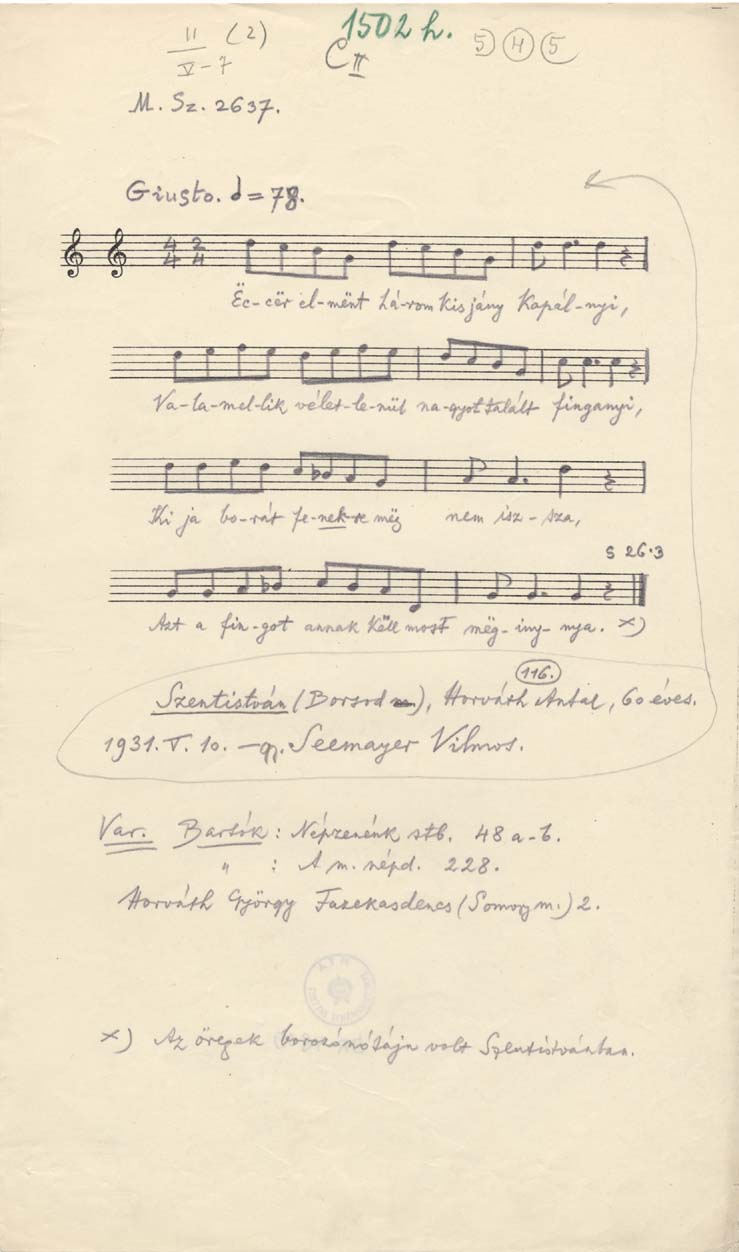 II (2)
V-7
1502 h.
C II
5 4 5
M. Sz. 2637.
Giusto. = 78.
4 2
4 4
Ëc-cër el-mënt há-rom kis jány kapál-nyi,
Va-la-mel-lik vélet-le-nül na-gyot talált finganyi,
Ki ja bo-rát fe-nek-re még nem isz-sza,
S 26.3
Azt a fin-got annak këll most még-iny-nya. x)
116.
Szentistván (Borsod m), Horváth Antal, 60 éves.
1931. V. 10. — gy. Seemayer Vilmos.
Var. Bartók: Népzenénk stb. 48 a-b.
" : A m. népd. 228.
Horváth György Fazekasdencs (Somogy m.) 2.
x) Az öregek borozónótája volt Szentistvánban.